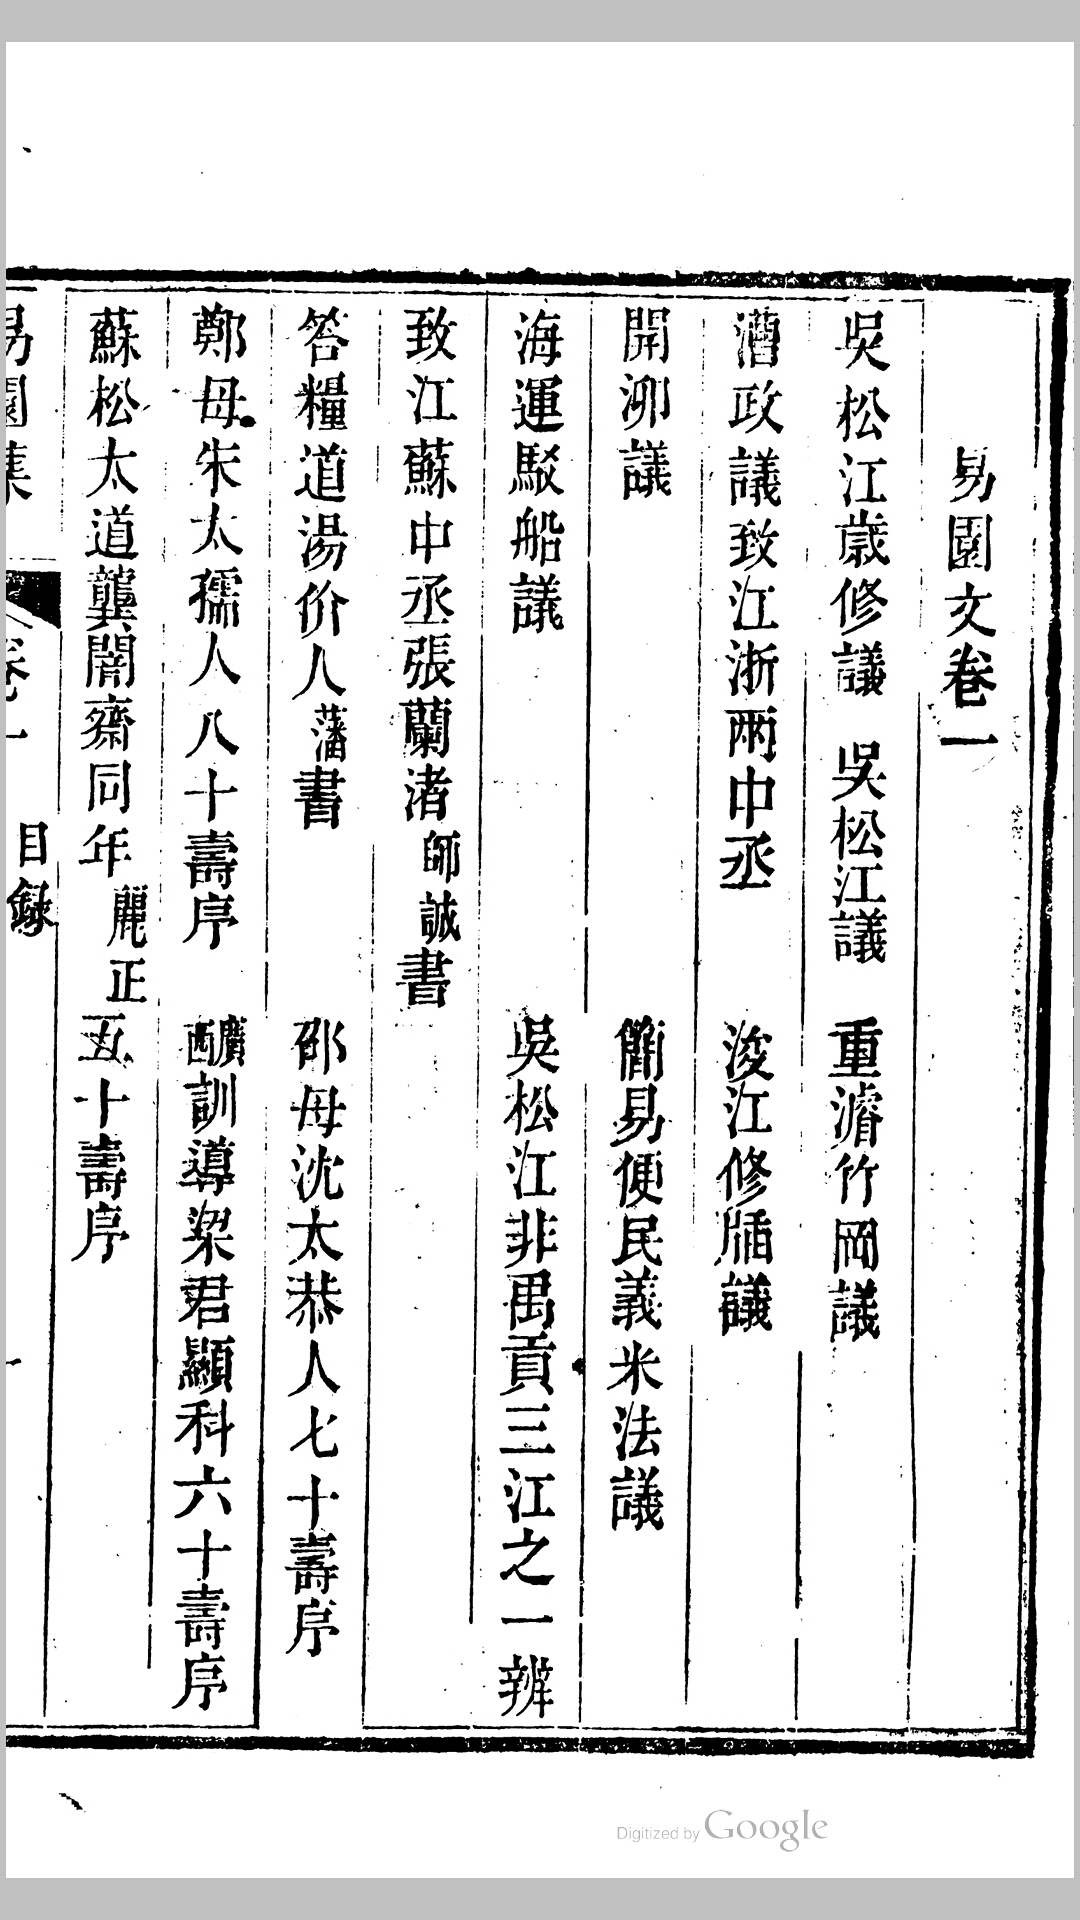 易園文卷一
吳松江歲修議　吳松江議　重濬竹岡議
漕政議致江浙兩中丞　浚江修牐議
開泖議　簡易便民義米法議
海運駁船議　吳松江非禹貢三江之一辨
致江蘇中丞張蘭渚師誠書
答糧道湯价人藩書　邵母沈太恭人七十壽序
鄭母朱太孺人八十壽序　訓導梁君顯科六十壽序
蘇松太道龔闇齋同年麗正五十壽序
易園集　卷一　目錄　一
Digitized by Google